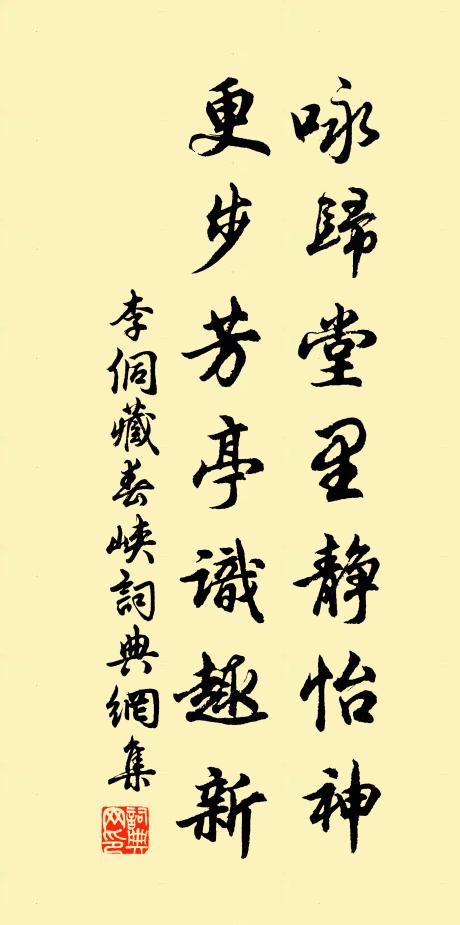 咏歸堂里静怡神
更步芳亭識趣新
李侗藏春峽詞典網集
詞典网印